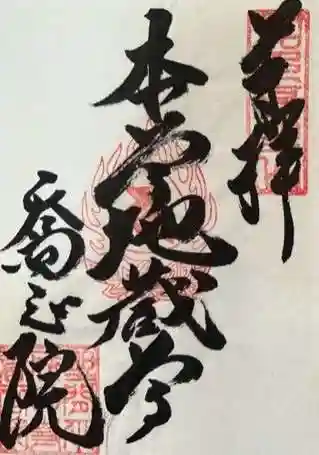 奉拝
本尊地蔵尊
喬正院